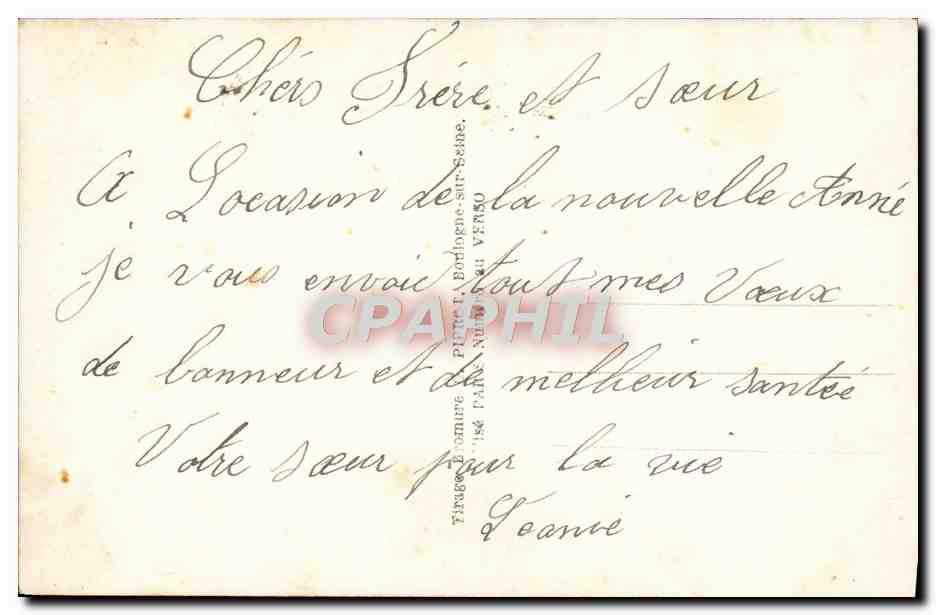 Chérs Frére et sœur
A L'ocasion de la nouvelle Anné
je vous envoie tout mes Vœux
de bonneur et de melheur santée
Votre sœur pour la vie
Tirage Bromure PIERRE, Boulogne-sur-Seine.
PARIS Numéro au VERSO
CPAPHIL